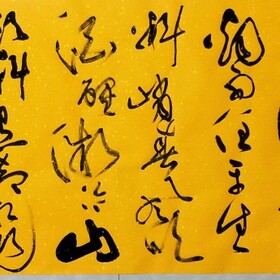 烟雨任平生
料峭春风吹
酒醒微冷山
头斜照却相迎